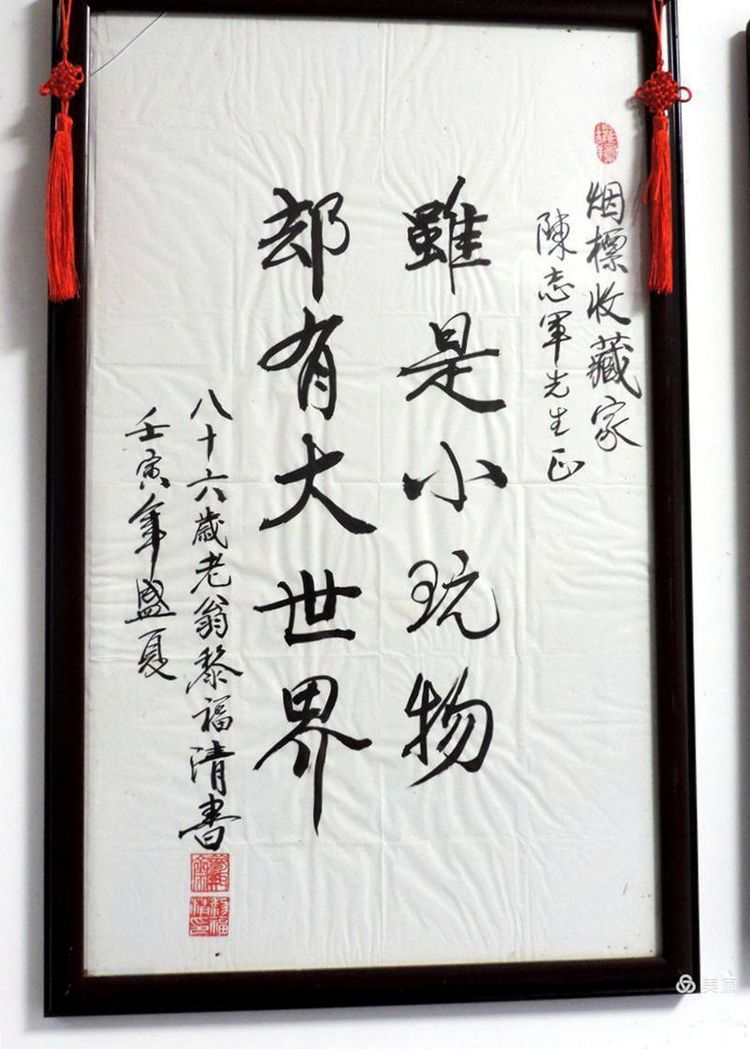 烟標收藏家
陳志軍先生正
雖是小玩物
却有大世界
八十六歲老翁黎福清書
壬寅年盛夏
美篇